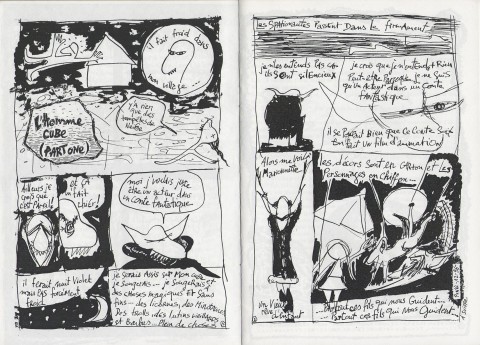 il fait froid dans
mon collège...
y'a rien
que des
tempêtes de
neige
L'Homme
CUBE
(PART ONE)
Ailleurs je
crois que
c'est Pareil
et ça
fait
chier!
moi j'voulais juste
être un acteur dans
un Conte fantastique
il ferait nuit Violet
mais pas forcément
froid
je serais Assis sur Mon cube
je songerais... je songerais à
des choses magiques et Sans
fins... des lichens, des Minotaures
Des trolls des lutins
et Barbus... Plein de choses
les Spationautes Passent Dans le firmament
je n'les entends Pas car
ils Sont silencieux
je crois que je n'entends Rien
Peut-être Parceque je ne Suis
qu'un Acteur dans un Conte
fantastique...
il se Pourrait Bien que Ce Conte Soit
en fait un film d'animation
Alors me voici
Marionnette
les décors Sont en Carton et les
Personnages en Chiffon...
Un Vieux
rêve d'enfant
Partout ces fils qui nous Guident...
Partout ces fils qui Nous Guident